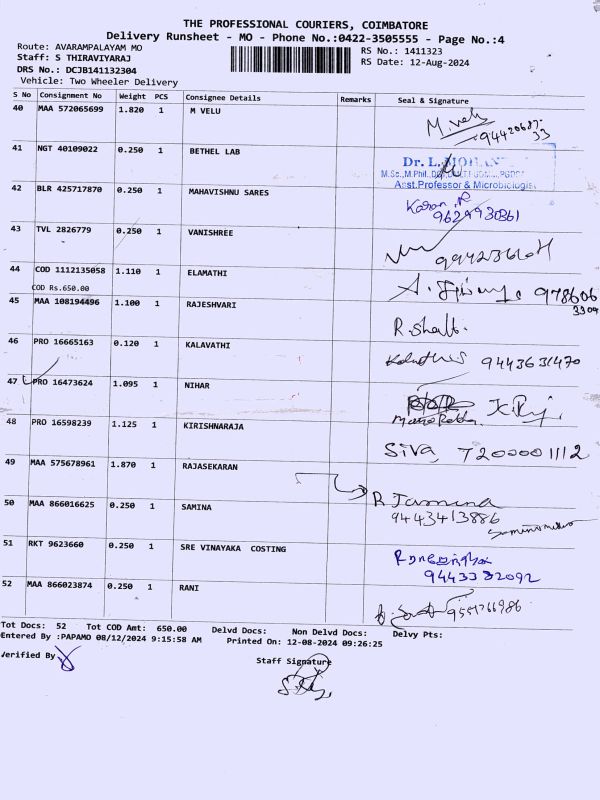 THE PROFESSIONAL COURIERS, COIMBATORE
Delivery Runsheet - MO - Phone No.:0422-3505555 - Page No.:4
Route: AVARAMPALAYAM MO RS No.: 1411323
Staff: S THIRAVIYARAJ RS Date: 12-Aug-2024
DRS No.: DCJB141132304
Vehicle: Two Wheeler Delivery
S No Consignment No Weight PCS Consignee Details Remarks Seal & Signature
40 MAA 572065699 1.820 1 M VELU M. velu
41 NGT 40109022 0.250 1 BETHEL LAB
Dr. L.
Asst.Professor & Microbiologist
42 BLR 425717870 0.250 1 MAHAVISHNU SARES
43 TVL 2826779 0.250 1 VANISHREE
44 COD 1112135058 1.110 1 ELAMATHI
COD Rs.650.00
45 MAA 108194496 1.100 1 RAJESHVARI
46 PRO 16665163 0.120 1 KALAVATHI 9443631470
47 PRO 16473624 1.095 1 NIHAR
48 PRO 16598239 1.125 1 KIRISHNARAJA Siva 7200001112
49 MAA 575678961 1.870 1 RAJASEKARAN
50 MAA 866016625 0.250 1 SAMINA R Jamina
9443413886
51 RKT 9623660 0.250 1 SRE VINAYAKA COSTING
9443382092
52 MAA 866023874 0.250 1 RANI
Tot Docs: 52 Tot COD Amt: 650.00 Delvd Docs: Non Delvd Docs: Delvy Pts:
Entered By :PAPAMO 08/12/2024 9:15:58 AM Printed On: 12-08-2024 09:26:25
Verified By
Staff Signature